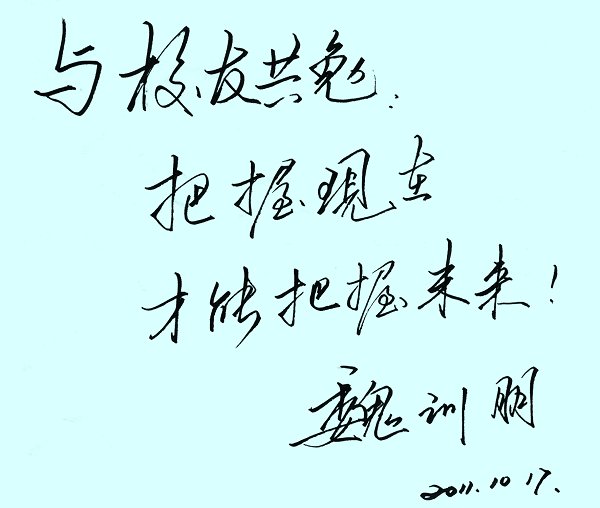 与校友共勉.
把握現在
才能把握未来!
魏训朋
2011.10.17.